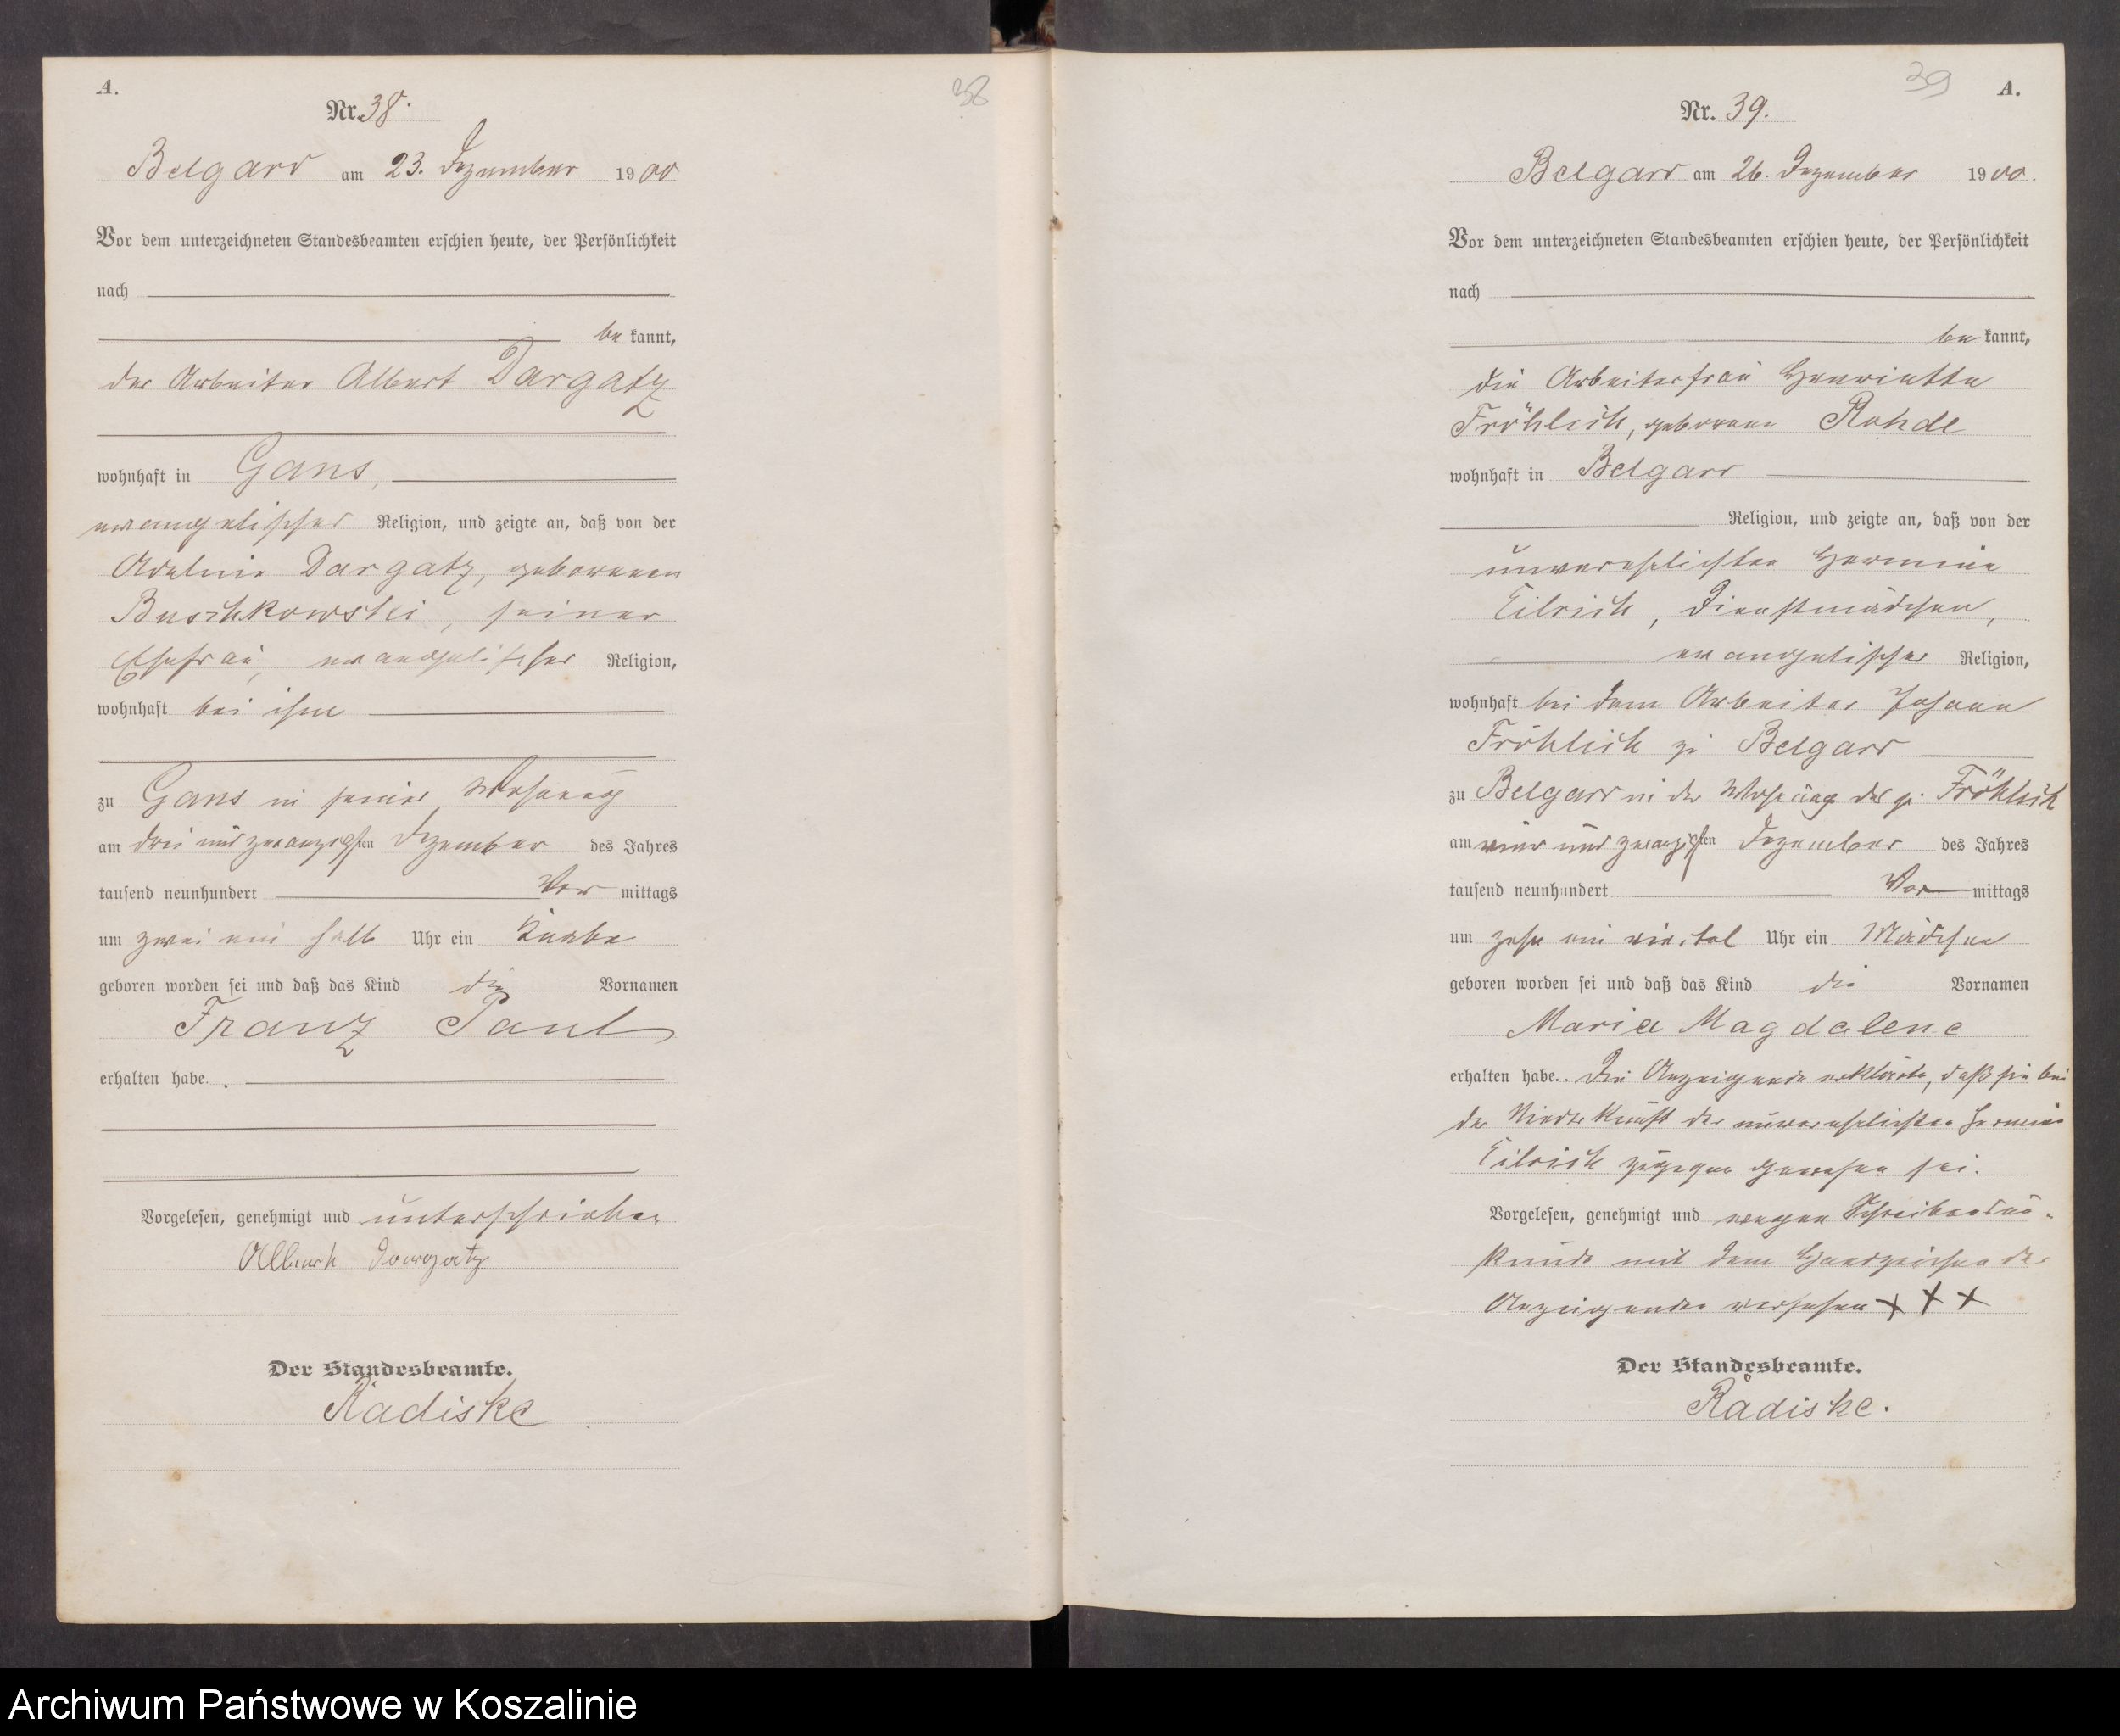 A.
38
Nr. 38.
Belgard am 23. Dezember 1900
Vor dem unterzeichneten Standesbeamten erschien heute, der Persönlichkeit
nach
be kannt,
der Arbeiter Albert Dargatz
wohnhaft in Gans,
evangelischer Religion, und zeigte an, daß von der
Adeline Dargatz, geborenen
Buschkowski, seiner
Ehefrau, evangelischer Religion,
wohnhaft bei ihm
zu Gans in seiner Wohnung
am drei und zwanzigsten Dezember des Jahres
tausend neunhundert Vor mittags
um zwei ein halb Uhr ein Knabe
geboren worden sei und daß das Kind die Vornamen
Franz Paul
erhalten habe.
Vorgelesen, genehmigt und unterschrieben
Albert Dargatz
Der Standesbeamte.
Radiske
39
A.
Nr. 39.
Belgard am 26. Dezember 1900.
Vor dem unterzeichneten Standesbeamten erschien heute, der Persönlichkeit
nach
be kannt,
die Arbeiterfrau Henriette
Fröhlich, geborene Rohde
wohnhaft in Belgard
Religion, und zeigte an, daß von der
unverehelichten Hermine
Eilrich, Dienstmädchen,
evangelischer Religion,
wohnhaft bei dem Arbeiter Johann
Fröhlich zu Belgard
zu Belgard in der Wohnung des p. Fröhlich
am vier und zwanzigsten Dezember des Jahres
tausend neunhundert Vor mittags
um zehn ein viertel Uhr ein Mädchen
geboren worden sei und daß das Kind die Vornamen
Maria Magdalene
erhalten habe. Die Anzeigende erklärte, daß sie bei
der Niederkunft der unverehelichten Hermine
Eilrich zugegen gewesen sei.
Vorgelesen, genehmigt und wegen Schreibensun-
kunde mit dem Handzeichen der
Anzeigenden versehen + + +
Der Standesbeamte.
Radiske.
Archiwum Państwowe w Koszalinie